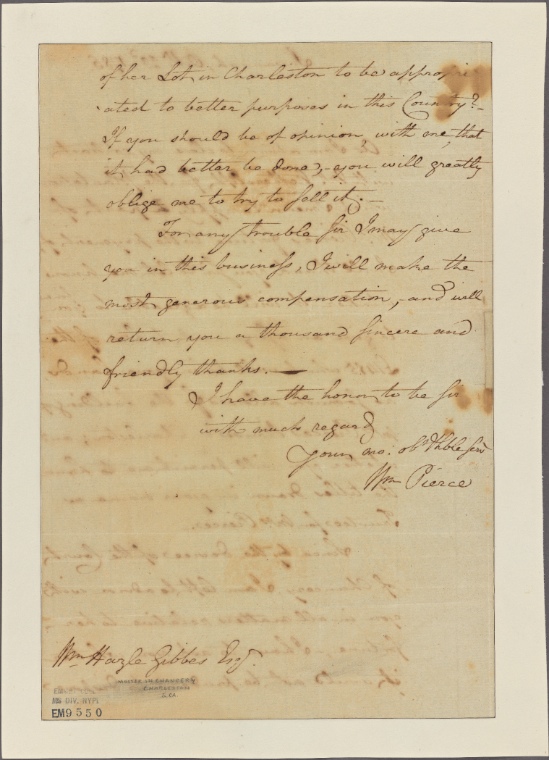 of her Lot, in Charleston to be appropri
ated to better purposes in this Country?—
If you should be of opinion, with me, that
it had better be done, you will greatly
oblige me to try to sell it.—
For any trouble Sir I may give
you in this business, I will make the
most generous compensation, and will
return you a thousand sincere and
friendly thanks.—
I have the honor to be Sir
with much regard
Your mo. obt
Wm Pierce
Wm Hazle Gibbes Esqr.
MASTER IN CHANCERY
CHARLESTON
S. CA
MS DIV. NYPL
EM9550